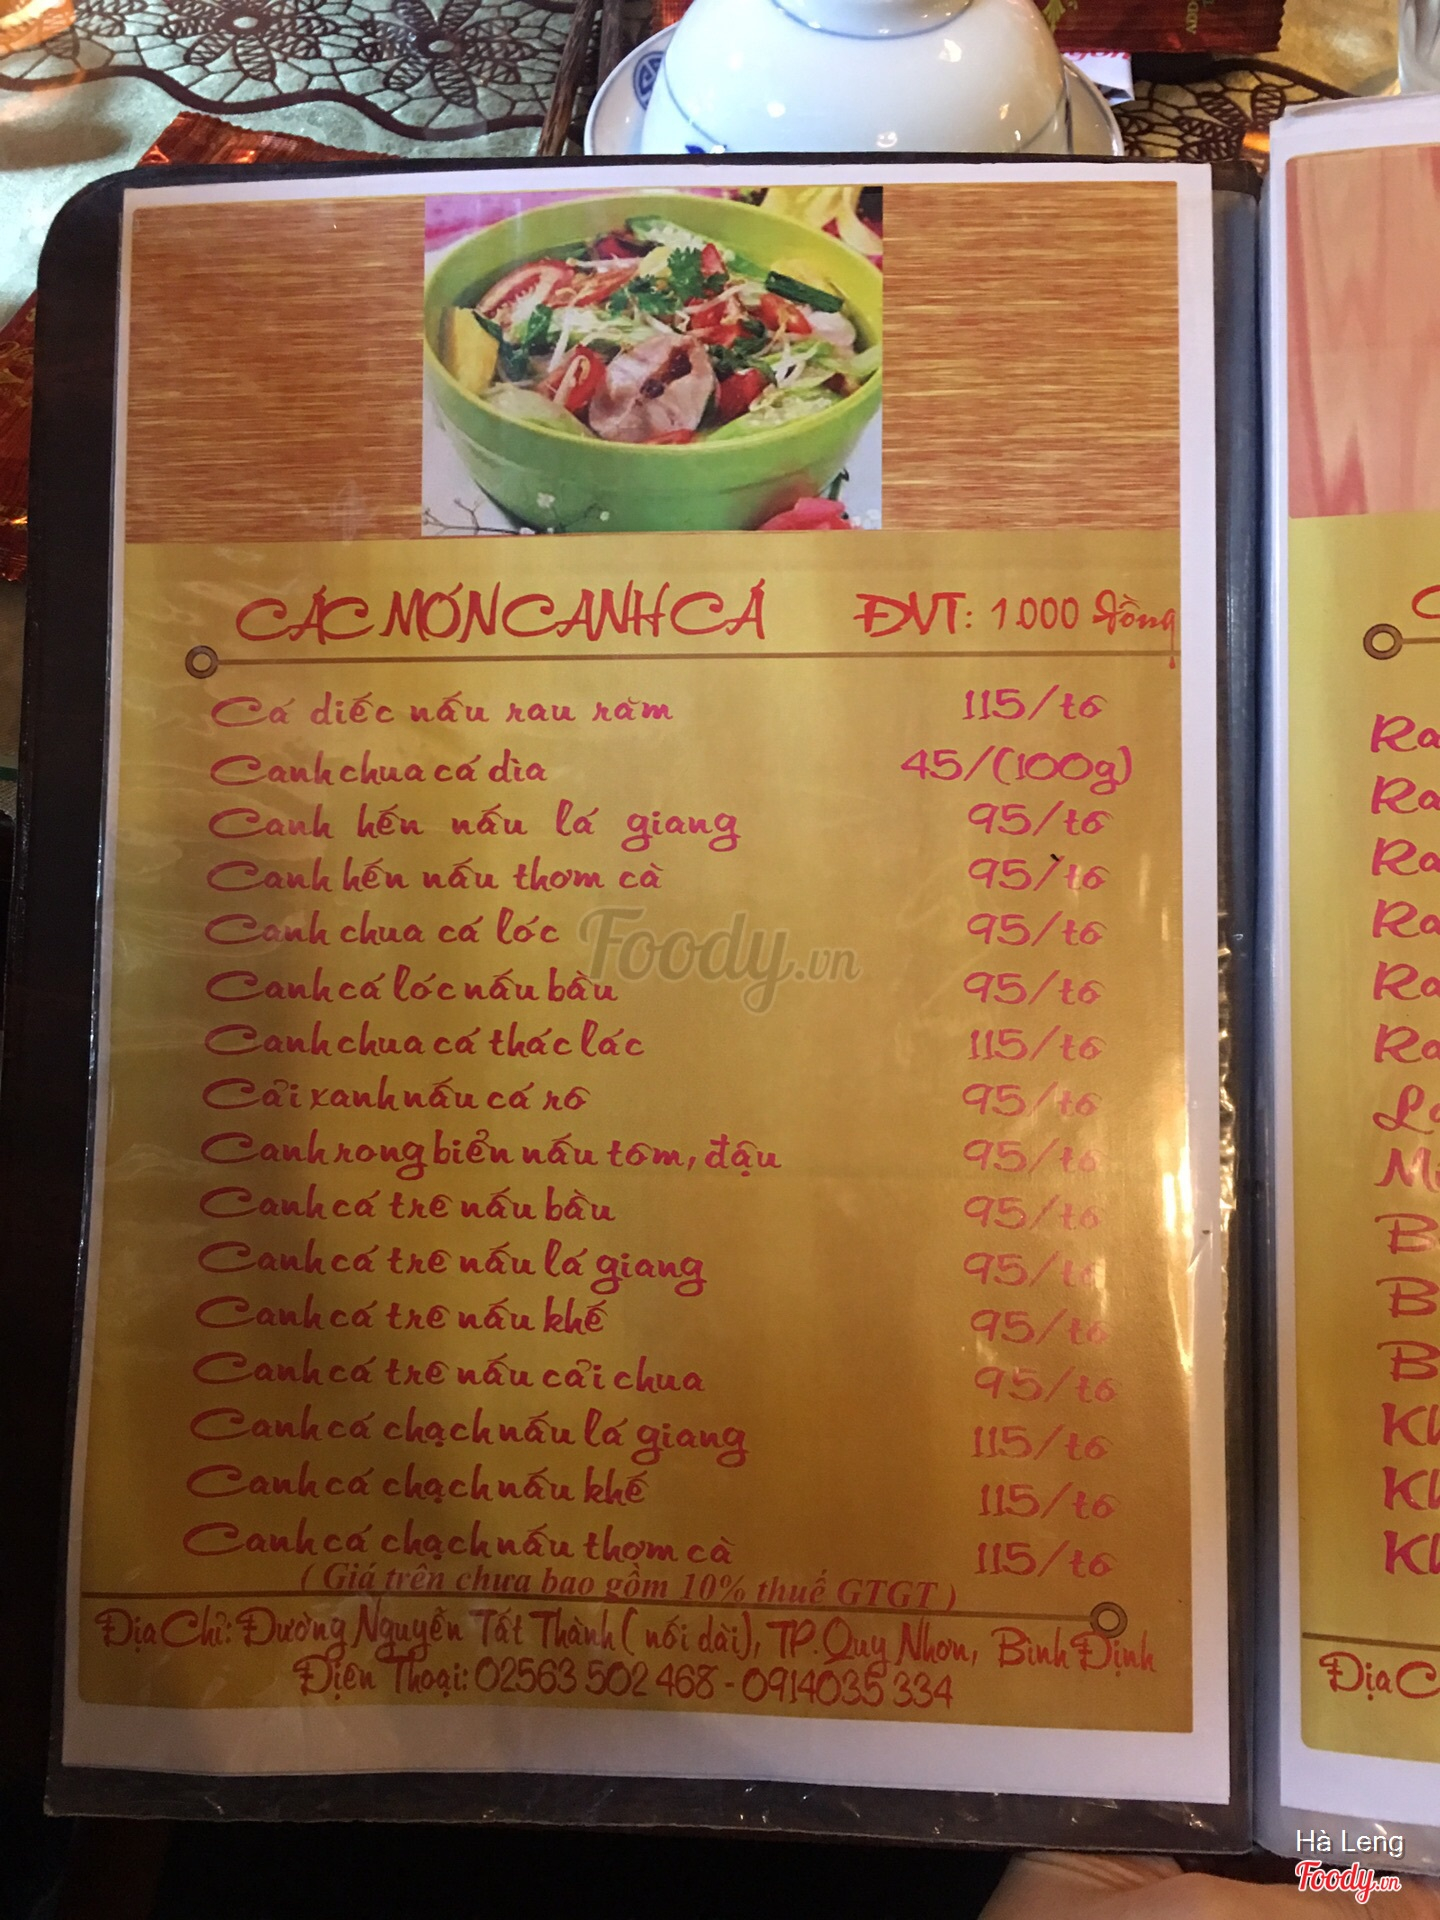 CÁC MÓN CANH CÁ ĐVT: 1.000 đồng
Cá diếc nấu rau răm 115/tô
Canh chua cá dìa 45/(100g)
Canh hến nấu lá giang 95/tô
Canh hến nấu thơm cà 95/tô
Canh chua cá lóc 95/tô
Canh cá lóc nấu bầu 95/tô
Canh chua cá thác lác 115/tô
Cải xanh nấu cá rô 95/tô
Canh rong biển nấu tôm, đậu 95/tô
Canh cá trê nấu bầu 95/tô
Canh cá trê nấu lá giang 95/tô
Canh cá trê nấu khế 95/tô
Canh cá trê nấu cải chua 95/tô
Canh cá chạch nấu lá giang 115/tô
Canh cá chạch nấu khế 115/tô
Canh cá chạch nấu thơm cà 115/tô
( Giá trên chưa bao gồm 10% thuế GTGT )
Địa Chỉ: Đường Nguyễn Tất Thành ( nối dài), TP. Quy Nhơn, Bình Định
Điện Thoại: 02563 502 468 - 0914035 334
Foody.vn
Địa C
Hà Leng
Foody.vn